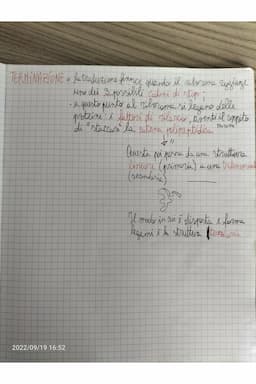 TERMINAZIONE = la traduzione finisce quando il ribosoma raggiunge
uno dei 3 possibili codoni di stop.
a questo punto al ribosoma si legano delle
proteine: i fattori di rilascio, aventi il compito
di "staccare" la catena polipeptidica
Questa poi passa da una struttura
lineare (primaria) a una
(secondaria)
Il modo in cui è disposta e forma
legami è la struttura terziaria
2022/09/19 16:52